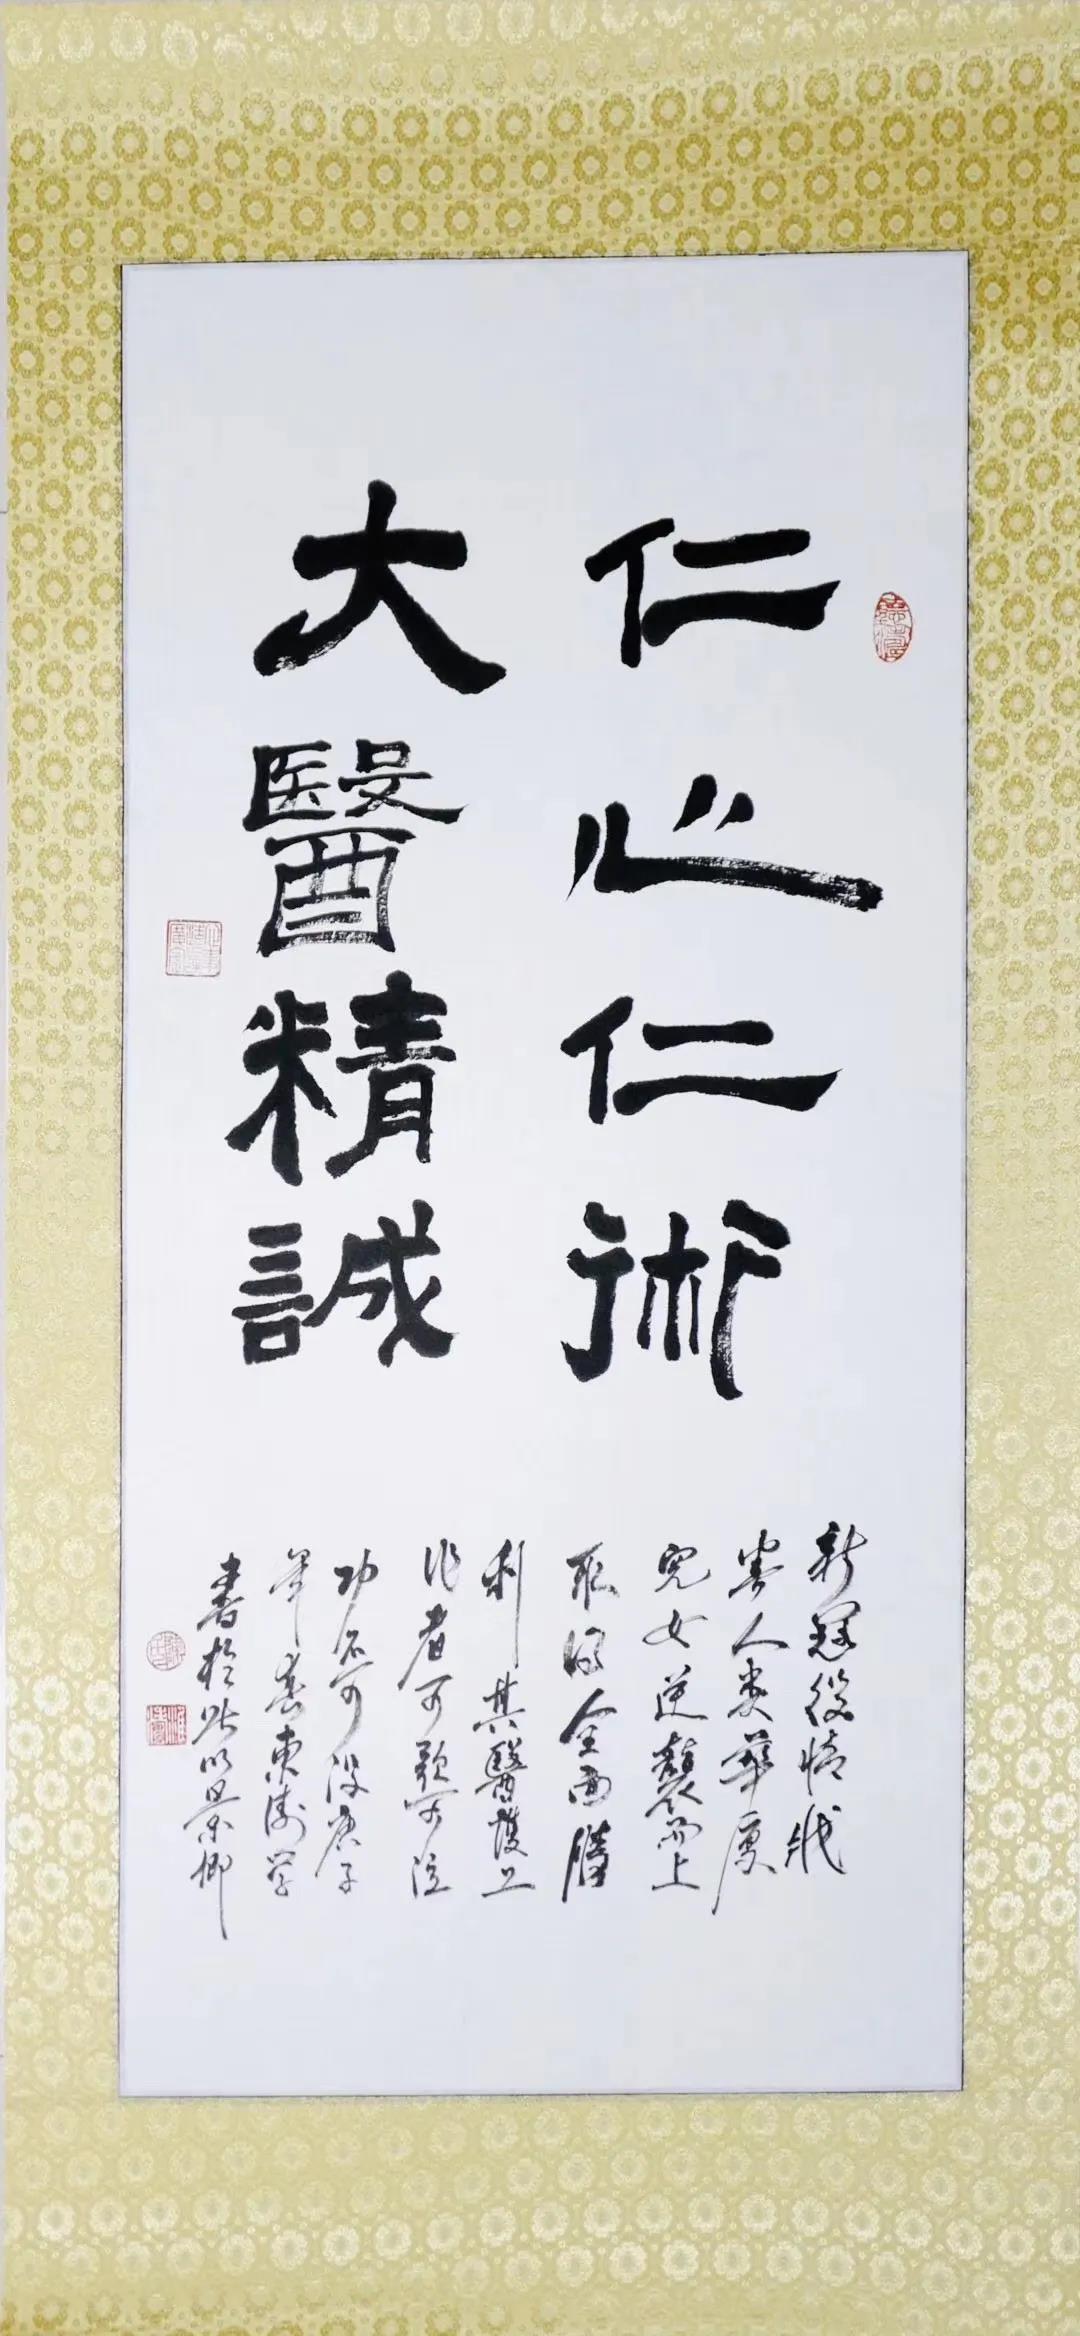 仁心仁術
大醫精誠
新冠役情戕
害人类華夏
兒女逆襲而上
取得全面勝
利其醫護工
作者可歌可泣
功不可没庚子
年春東濤學
書於此以景仰